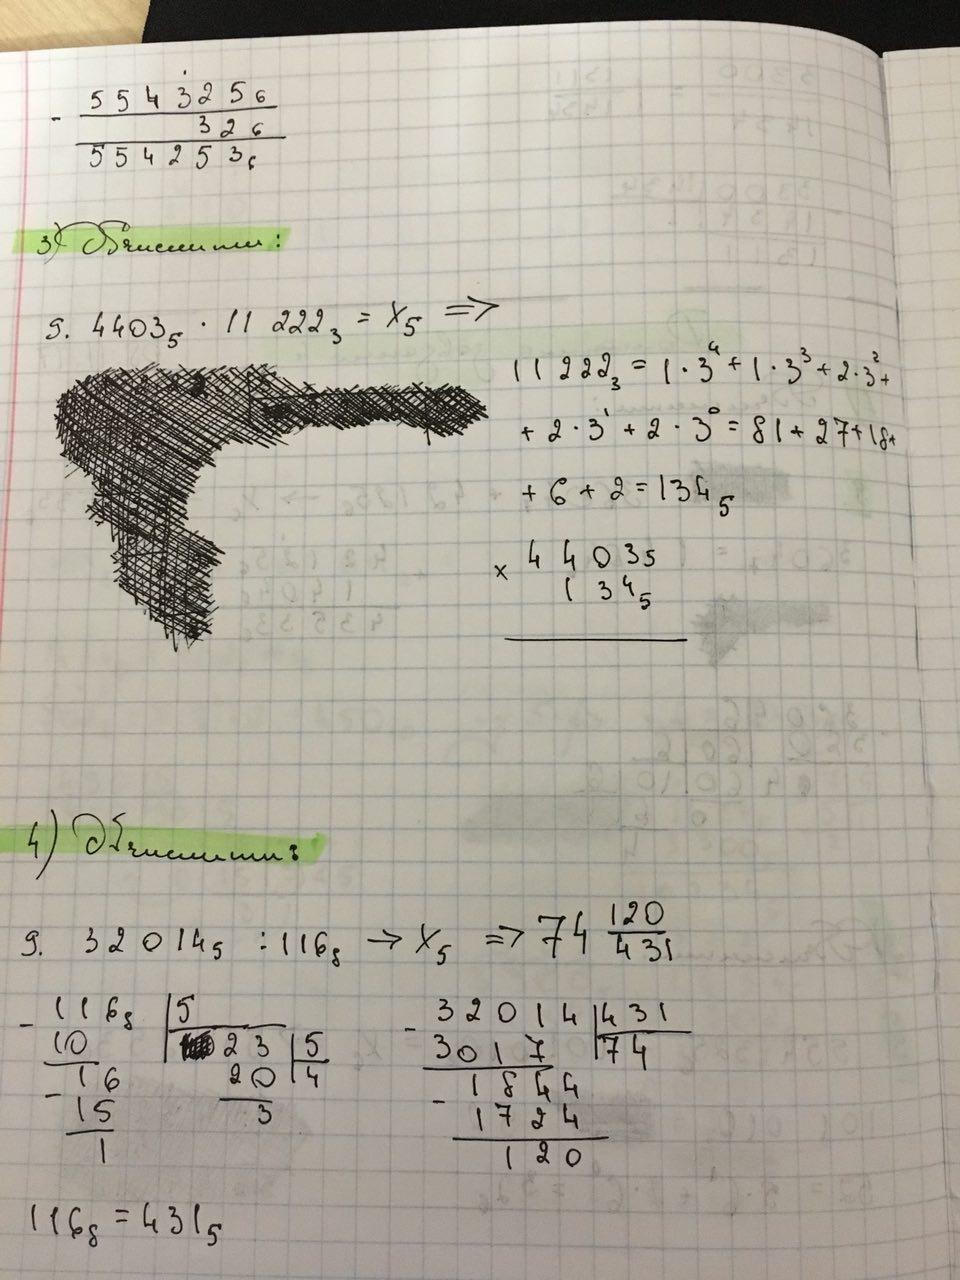 - 5 5 4 3 2 5₆
3 2₆
5 5 4 2 5 3₆
3) Обчислити:
9. 4403₅ · 11 222₃ = X₅ ⇒
11 222₃ = 1·3⁴ + 1·3³ + 2·3² +
+ 2·3¹ + 2·3⁰ = 81 + 27 + 18 +
+ 6 + 2 = 134₅
× 4 4 0 3₅
1 3 4₅
4) Обчислити:
9. 3 2 0 1 4₅ : 116₈ → X₅ ⇒ 74 120/431
- 116₈ | 5
10 | 23 | 5
- 16 20 | 4
15 3
1
- 3 2 0 1 4 | 431
3 0 1 7 | 74
- 1 8 4 4
1 7 2 4
1 2 0
116₈ = 431₅